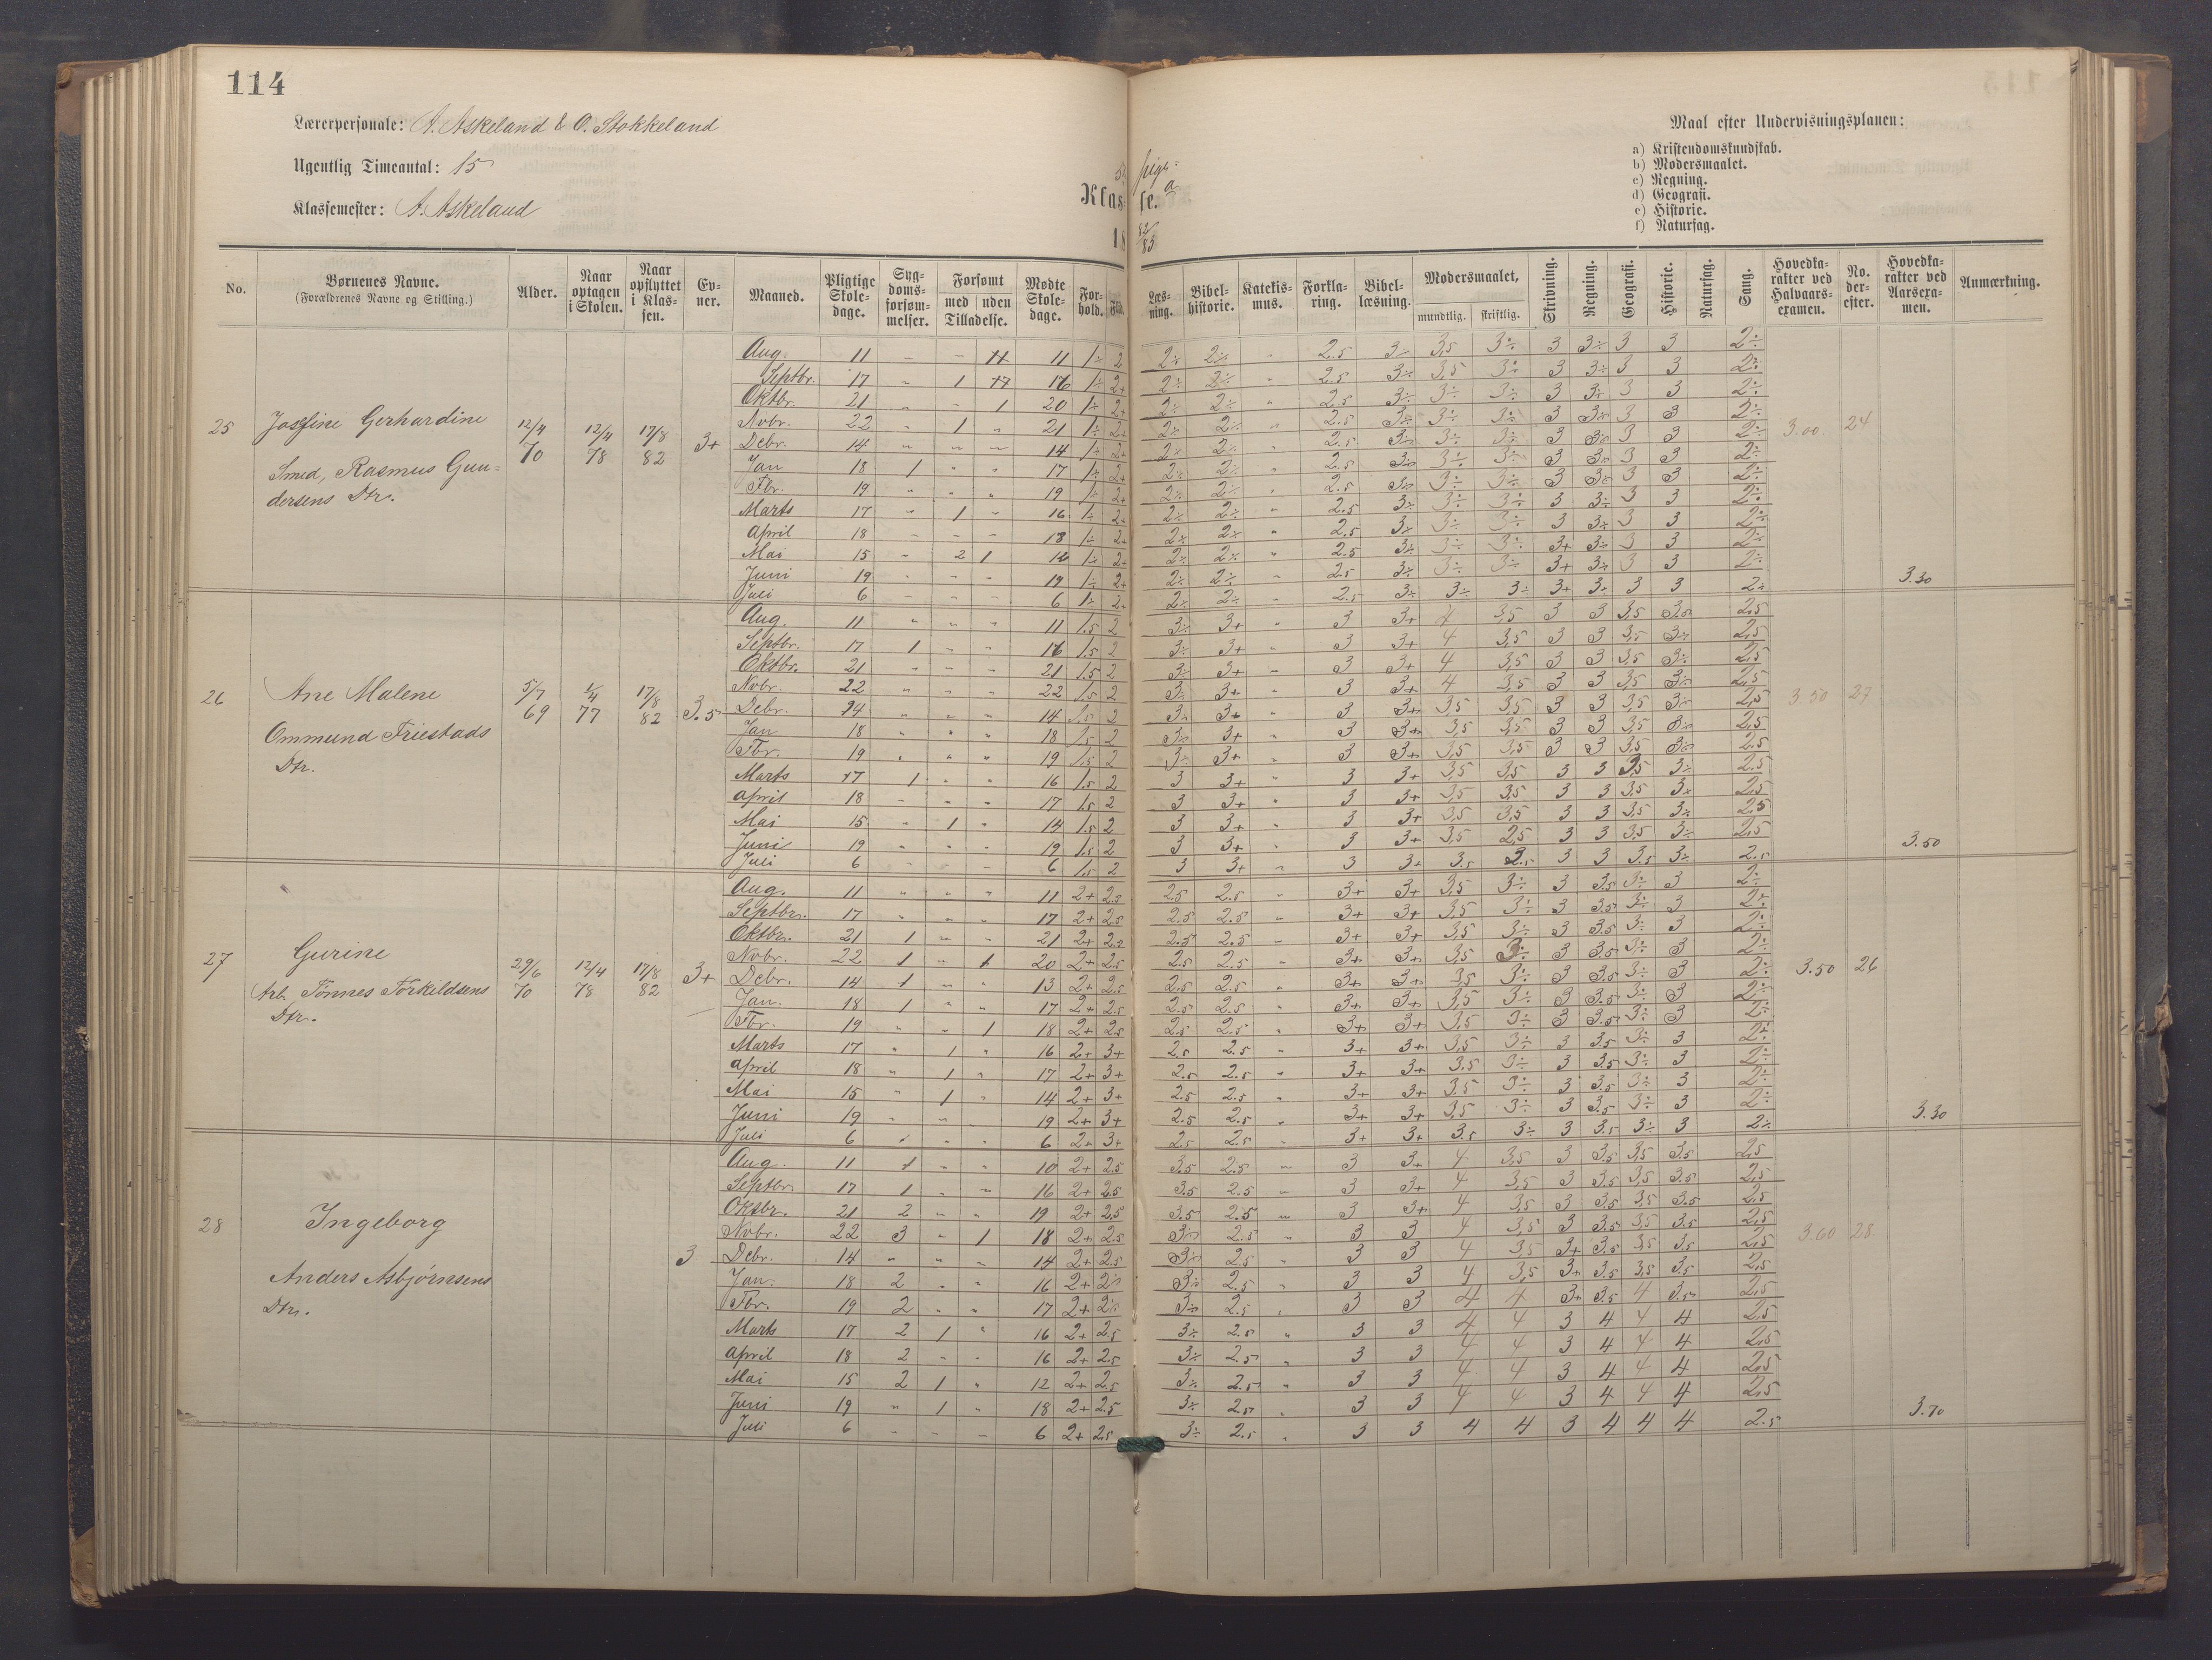 114
Lærerpersonale: A. Askeland & O. Stokkeland
Ugentlig Timeantal: 15
Klassemester: A. Askeland
5te pige-
Klasse. a
18 82/83
Maal efter Undervisningsplanen:
a) Kristendomskundskab.
b) Modersmaalet.
c) Regning.
d) Geografi.
e) Historie.
f) Naturfag.
No. | Børnenes Navne. (Forældrenes Navne og Stilling.) | Alder. | Naar optagen i Skolen. | Naar opflyttet i Klassen. | Evner. | Maaned. | Pligtige Skoledage. | Sygdomsforsømmelser. | Forsømt med Tilladelse. | uden | Mødte Skoledage. | Forhold. | Flid. | Læsning. | Bibelhistorie. | Katekismus. | Forklaring. | Bibellæsning. | Modersmaalet, mundtlig. | skriftlig. | Skrivning. | Regning. | Geografi. | Historie. | Naturfag. | Sang. | Hovedkarakter ved Halvaarsexamen. | No. derefter. | Hovedkarakter ved Aarsexamen. | Anmærkning.
25 Josefine Gerhardine 12/4 70 12/4 78 17/8 82 3+
Smed, Rasmus Gundersens Dtr.
3.00 24 3.30
Aug. 11 - - 11 11 1÷ 2 2÷ 2÷ " 2.5 3÷ 3,5 3÷ 3 3÷ 3 3 2÷
Septbr. 17 " 1 17 16 1÷ 2+ 2÷ 2÷ " 2.5 3÷ 3,5 3÷ 3 3÷ 3 3 2÷
Oktbr. 21 " - 1 20 1÷ 2+ 2÷ 2÷ " 2.5 3÷ 3÷ 3÷ 3 3÷ 3 3 2÷
Novbr. 22 " 1 " 21 1÷ 2+ 2÷ 2÷ " 2.5 3÷ 3÷ 3÷ 3 3÷ 3 3 2÷
Debr. 14 " " " 14 1÷ 2+ 2÷ 2÷ " 2.5 3÷ 3÷ 3÷ 3 3÷ 3 3 2÷
Jan 18 1 " " 17 1÷ 2+ 2÷ 2÷ " 2.5 3÷ 3÷ 3÷ 3 3÷ 3 3 2÷
Fbr. 19 " " " 19 1÷ 2+ 2÷ 2÷ " 2.5 3÷ 3÷ 3÷ 3 3÷ 3 3 2÷
Marts 17 " 1 " 16 1÷ 2+ 2÷ 2÷ " 2.5 3÷ 3÷ 3÷ 3 3÷ 3 3 2÷
April 18 - - - 18 1÷ 2+ 2÷ 2÷ " 2.5 3÷ 3÷ 3÷ 3 3÷ 3 3 2÷
Mai 15 - 2 1 12 1÷ 2+ 2÷ 2÷ " 2.5 3÷ 3÷ 3÷ 3+ 3÷ 3 3 2÷
Juni 19 - - - 19 1÷ 2+ 2÷ 2÷ 2.5 3÷ 3÷ 3÷ 3+ 3÷ 3 3 2÷
Juli 6 - - - 6 1÷ 2+ 2÷ 2÷ " 2.5 3÷ 3÷ 3÷ 3+ 3÷ 3 3 2÷
26 Ane Malene 5/7 69 1/4 77 17/8 82 3.5
Ommund Friestads
Dtr.
3.50 27 3.50
Aug. 11 " " " 11 1.5 2 3÷ 3+ " 3 3+ 4 3,5 3 3 3,5 3÷ 2,5
Septbr. 17 1 " " 16 1.5 2 3÷ 3+ " 3 3+ 4 3,5 3 3 3,5 3÷ 2,5
Oktbr. 21 " " " 21 1.5 2 3÷ 3+ - 3 3+ 4 3,5 3 3 3,5 3÷ 2,5
Novbr. 22 " " " 22 1.5 2 3÷ 3+ " 3 3+ 4 3,5 3 3 3,5 3÷ 2,5
Debr. 14 " " " 14 1.5 2 3÷ 3+ " 3 3+ 3,5 3,5 3 3 3,5 3÷ 2,5
Jan 18 " " " 18 1.5 2 3÷ 3+ " 3 3+ 3,5 3,5 3 3 3,5 3÷ 2,5
Fbr. 19 " " " 19 1.5 2 3÷ 3+ " 3 3+ 3,5 3,5 3 3 3,5 3÷ 2.5
Marts 17 1 " " 16 1.5 2 3 3+ " 3 3+ 3,5 3,5 3 3 3,5 3÷ 2.5
April 18 - " " 17 1.5 2 3 3+ " 3 3+ 3,5 3,5 3 3 3,5 3÷ 2,5
Mai 15 " 1 " 14 1.5 2 3 3+ " 3 3+ 3,5 3,5 3 3 3,5 3÷ 2,5
Juni 19 " " " 19 1.5 2 3 3+ " 3 3+ 3,5 2,5 3 3 3,5 3÷ 2,5
Juli 6 - - - 6 1.5 2 3 3+ " 3 3+ 3.5 3 3 3.5 3÷ 2.5
27 Gurine 29/6 70 12/4 78 17/8 82 3+
Arb. Tönnes Torkeldsens
Dtr.
3.50 26 3.30
Aug. 11 " " " 11 2+ 2.5 2.5 2.5 " 3+ 3+ 3,5 3÷ 3 3.5 3÷ 3 2÷
Septbr. 17 " " " 17 2+ 2.5 2.5 2.5 " 3+ 3+ 3,5 3÷ 3 3.5 3÷ 3 2÷
Oktbr. 21 1 " " 21 2+ 2.5 2.5 2.5 - 3+ 3+ 3,5 3÷ 3 3.5 3÷ 3 2÷
Novbr. 22 1 " 1 20 2+ 2.5 2.5 2.5 " 3+ 3+ 3,5 3÷ 3 3.5 3÷ 3 2÷
Debr. 14 1 " " 13 2+ 2.5 2.5 2.5 " 3+ 3+ 3,5 3÷ 3 3.5 3÷ 3 2÷
Jan. 18 1 " " 17 2+ 2.5 2.5 2.5 " 3+ 3+ 3,5 3÷ 3 3.5 3÷ 3 2÷
Fbr. 19 " " 1 18 2+ 2.5 2.5 2.5 " 3+ 3+ 3,5 3÷ 3 3.5 3÷ 3 2÷
Marts 17 " 1 " 16 2+ 3+ 2.5 2.5 " 3+ 3+ 3,5 3÷ 3 3.5 3÷ 3 2÷
April 18 " 1 " 17 2+ 3+ 2.5 2.5 " 3+ 3+ 3.5 3÷ 3 3.5 3÷ 3 2÷
Mai 15 " 1 " 14 2+ 3+ 2.5 2.5 " 3+ 3+ 3.5 3÷ 3 3.5 3÷ 3 2÷
Juni 19 " " 19 2+ 3+ 2.5 2.5 " 3+ 3+ 3,5 3÷ 3 3.5 3÷ 3 2÷
Juli 6 " " " 6 2+ 3+ 2.5 2.5 " 3+ 3+ 3.5 3÷ 3 3.5 3÷ 3 2÷
28 Ingeborg 3
Anders Asbjørnsens
Dtr.
3.60 28 3.70
Aug. 11 1 " " 10 2+ 2.5 3.5 2.5 " 3 3+ 4 3,5 3 3.5 3,5 3.5 2,5
Septbr. 17 1 " " 16 2+ 2.5 3.5 2.5 " 3 3+ 4 3,5 3 3.5 3,5 3.5 2,5
Oktbr. 21 2 " " 19 2+ 2.5 3.5 2.5 " 3 3+ 4 3,5 3 3.5 3,5 3.5 2,5
Novbr. 22 3 " 1 18 2+ 2.5 3÷ 2.5 " 3 3 4 3,5 3 3.5 3,5 3.5 2,5
Debr. 14 " " " 14 2+ 2.5 3÷ 2.5 " 3 3 4 3,5 3+ 3.5 3,5 3.5 2,5
Jan. 18 2 " " 16 2+ 2÷ 3÷ 2.5 " 3 3 4 3,5 3+ 3.5 3,5 3.5 2,5
Fbr. 19 2 " " 17 2+ 2÷ 3÷ 2.5 " 3 3 4 4 3+ 3.5 4 3.5 2,5
Marts 17 2 1 " 16 2+ 2.5 3÷ 2.5 " 3 3 4 4 3 4 4 4 2,5
April 18 2 - - 16 2+ 2.5 3÷ 2.5 " 3 3 4 4 3 4 4 4 2,5
Mai 15 2 1 " 12 2+ 2.5 3÷ 2.5 " 3 3 4 4 3 4 4 4 2,5
Juni 19 " 1 " 18 2+ 2.5 3÷ 2.5 " 3 3 4 4 3 4 4 4 2,5
Juli 6 - - - 6 2+ 2.5 3÷ 2.5 " 3 3 4 4 3 4 4 4 2.5